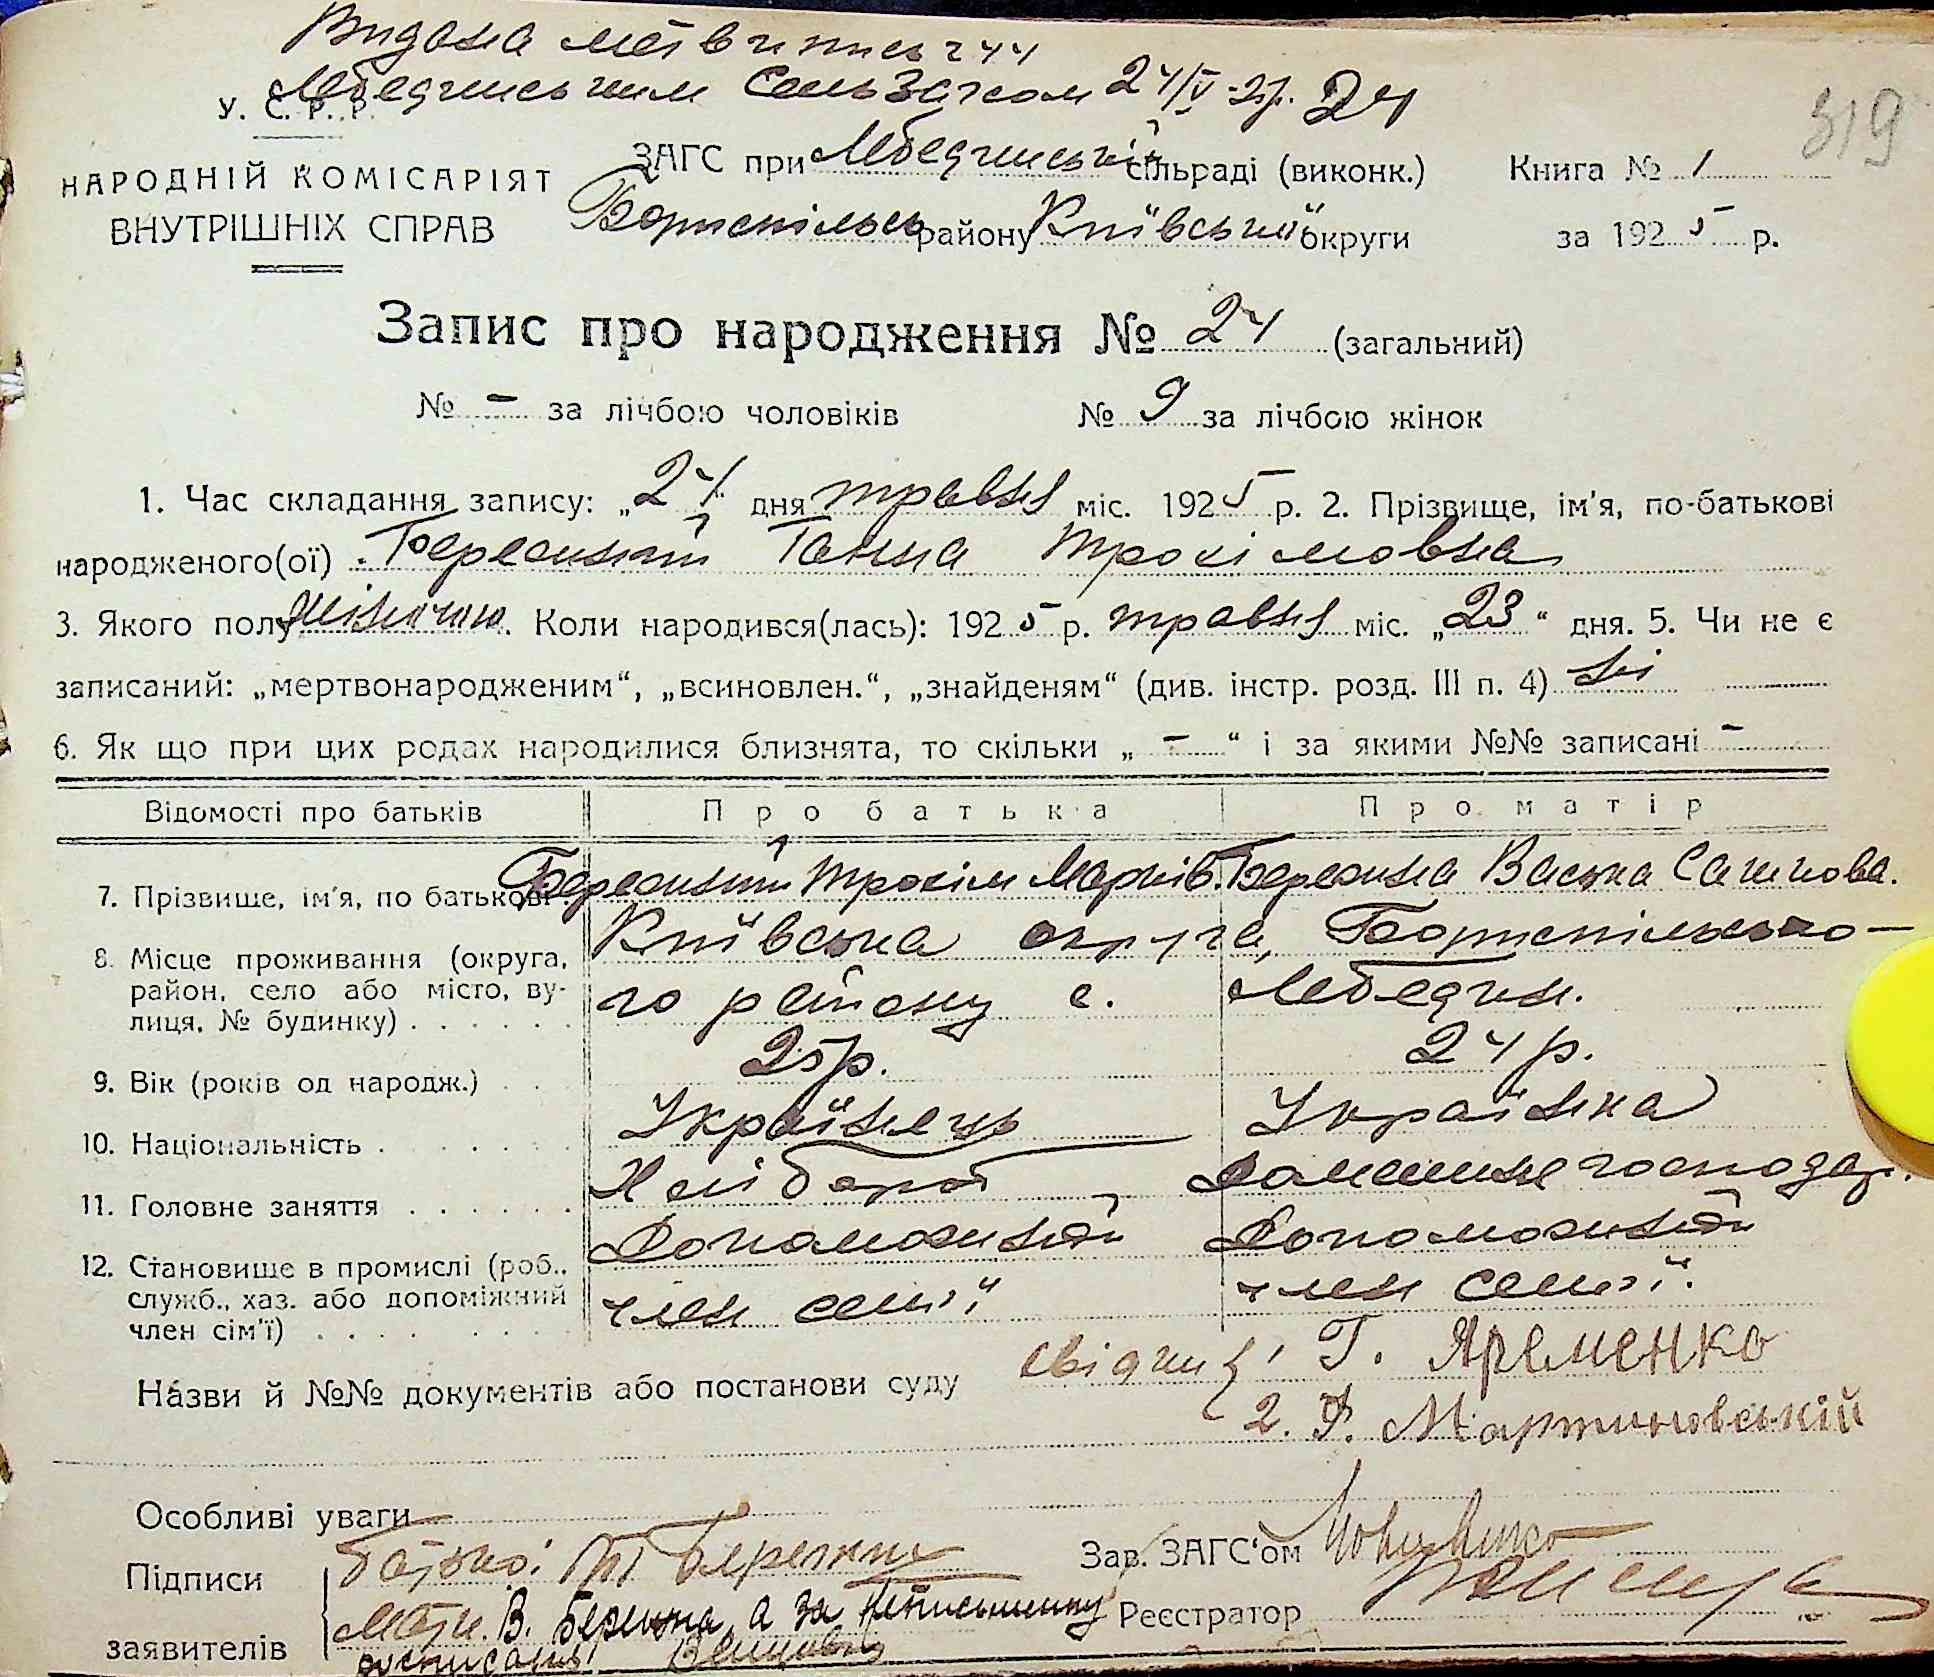 Видана метвипись
У. С. Р. Р. Лебединським Сельзагсом 24/V-25р. 24
319
НАРОДНІЙ КОМІСАРІЯТ
ВНУТРІШНІХ СПРАВ
ЗАГС при Лебединській сільраді (виконк.)
Бориспільськ району Київської округи
Книга № 1
за 1925 р.
Запис про народження № 24 (загальний)
№ - за лічбою чоловіків № 9 за лічбою жінок
1. Час складання запису: „24 дня травня міс. 1925 р. 2. Прізвище, ім'я, по-батькові
народженого(ої) Бережний Ганна Трохімовна
3. Якого полу жіночого. Коли народився(лась): 1925 р. травня міс. „23“ дня. 5. Чи не є
записаний: „мертвонародженим“, „всиновлен.“, „знайденям“ (див. інстр. розд. III п. 4) ні
6. Як що при цих родах народилися близнята, то скільки „ - “ і за якими №№ записані -
Відомості про батьків Про батька Про матір
7. Прізвище, ім'я, по батькові Бережний Трохім Марків. Бережна Васька Сашкова.
8. Місце проживання (округа, район, село або місто, вулиця, № будинку) Київська округа, Бориспільсько-
го району с. Лебедин.
9. Вік (років од народж.) 25р. 24р.
10. Національність Українець Українка
11. Головне заняття Хлібороб Домашнє господар.
12. Становище в промислі (роб., Допоможний Допоможний
служб., хаз. або допоміжний член семї член семї.
член сім'ї)
Назви й №№ документів або постанови суду свідки 1 Г. Яременко
2. Ф. Мартиновській
Особливі уваги
Підписи батько: Т Бережний Зав. ЗАГС'ом
Мати. В. Бережна, а за неписьменну Реєстратор
заявителів росписавсь